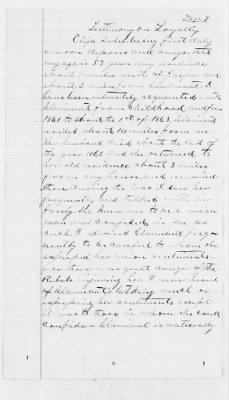 Page 8
Testimony on Loyalty
Eliza being first duly
sworn deposes and says that
my age is 53 years my residence
about 9 miles west of Jasper and
about 3 miles from Claimant. I
have been intimately acquainted with
Claimant from Childhood and from
1861 to about the 1st of 1863, Claimant
resided about 14 miles from me
her husband died about the last of
the year 1862 and she returned to
her old residence about 3 miles
from my house and remained
there during the war. I saw her
frequently and talked with her
She knew me to be a union
man and confided in me as
such. I advised Claimant freq-
uently to be careful to whom she
expressed her union sentiments
for there was great danger of the
Rebels injuring her I never heard
of Claimant talking much or
expressing her sentiments except
it was to those in whom she could
confide. Claimant is naturally